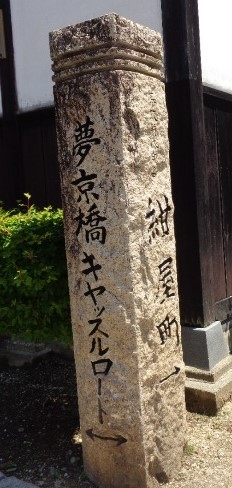 夢京橋キャッスルロート
↔
紺屋町
→